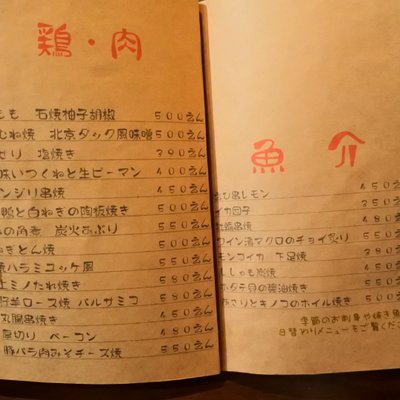 鶏・肉
もも 石焼柚子胡椒 500えん
むね焼 北京ダック風味噌 500えん
せり 塩焼き 390えん
味いつくねと生ピーマン 400えん
ンジリ串焼 450えん
鴨と白ねぎの陶板焼き 500えん
の角煮 炭火あぶり 550えん
ねぎとん焼 500えん
ハラミユッケ風 580えん
上ミノたれ焼き
仔羊ロース焼 バルサミコ 580えん
丸腸串焼き 450えん
厚切り ベーコン
豚バラ肉みそチーズ焼 550えん
魚介
えび串レモン 450
イカ団子 350
串焼 480
ワイン漬マグロのチョイ炙り 550
モンゴイカ 下足焼 380
ししゃも炭焼 450
ホタテ貝の醤油焼き 480
あさりとキノコのホイル焼き
季節のお刺身や焼き魚
日替わりメニューをご覧くださ